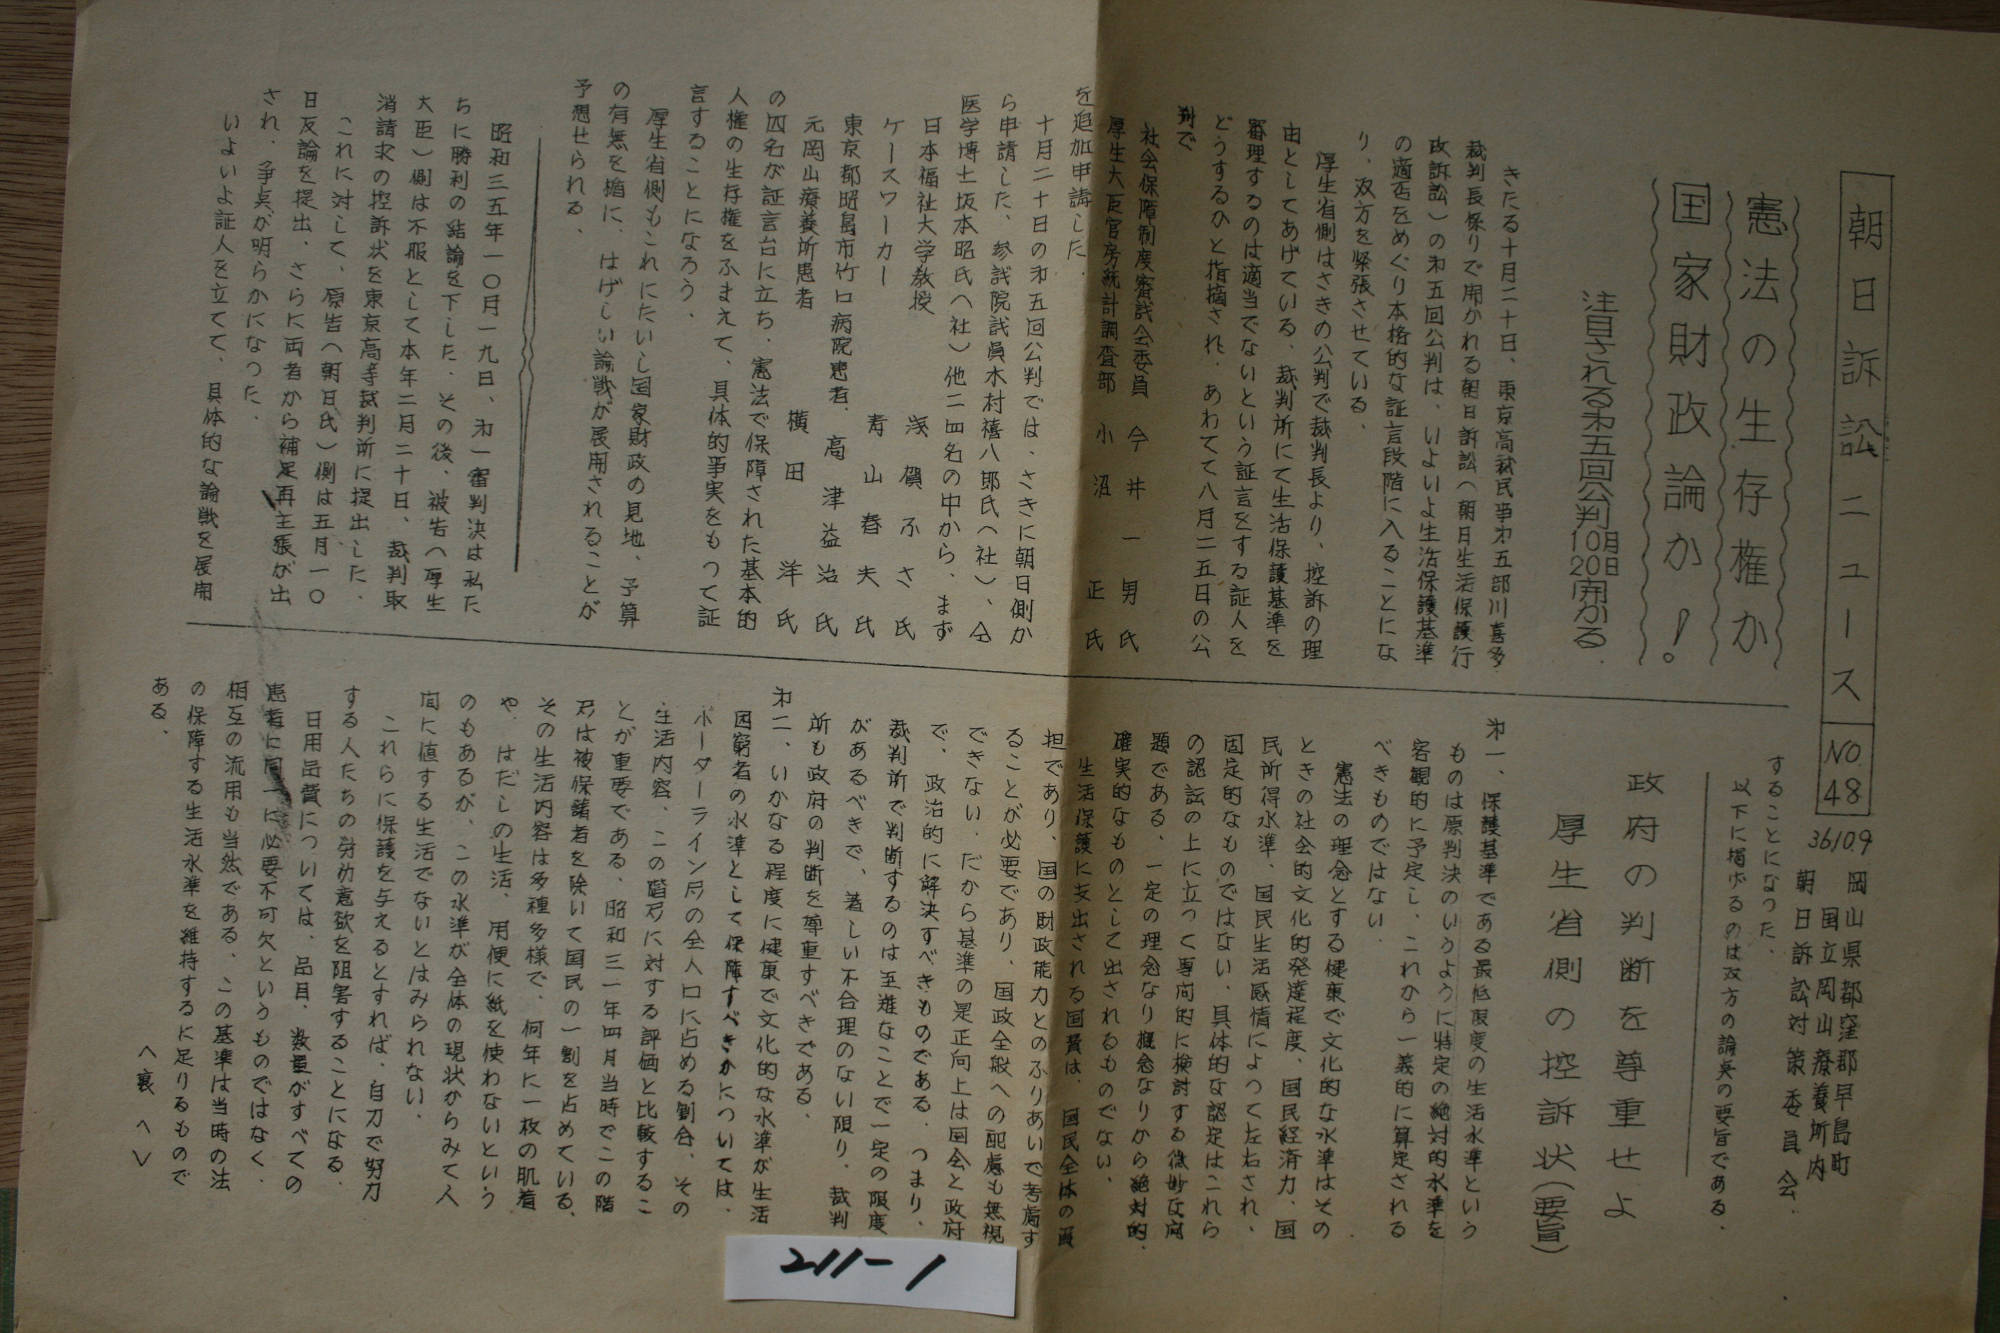 朝日訴訟ニュース
NO.48
36.10.9
岡山県都窪郡早島町
国立岡山療養所内
朝日訴訟対策委員会.
憲法の生存権か
国家財政論か!
注目される第五回公判10月20日開かる.
きたる十月二十日、東京高裁民事第五部川喜多
裁判長係りで開かれる朝日訴訟(朝日生活保護行
政訴訟)の第五回公判は、いよいよ生活保護基準
の適否をめぐり本格的な証言段階に入ることにな
り、双方を緊張させている.
厚生省側はさきの公判で裁判長より、控訴の理
由としてあげている、裁判所にて生活保護基準を
審理するのは適当でないという証言をする証人を
どうするかと指摘され、あわてて八月二五日の公
判で
社会保障制度審議会委員 今井一男氏
厚生大臣官房統計調査部 小沼 正氏
を追加申請した.
十月二十日の第五回公判では、さきに朝日側か
ら申請した、参議院議員木村禧八郎氏(社)、仝
医学博士坂本昭氏(社)他二四名の中から、まず
日本福祉大学教授 浅賀ふさ氏
ケースワーカー 青山春夫氏
東京都昭島市竹口病院患者. 高津益治氏
元岡山療養所患者 横田 洋氏
の四名が証言台に立ち、憲法で保障された基本的
人権の生存権をふまえて、具体的事実をもつて証
言することになろう.
厚生省側もこれにたいし国家財政の見地、予算
の有無を楯に、はげしい論戦が展開されることが
予想せられる.
昭和三五年一〇月一九日、第一審判決は私た
ちに勝利の結論を下した. その後、被告(厚生
大臣)側は不服として本年二月二十日、裁判取
消請求の控訴状を東京高等裁判所に提出した.
これに対して、原告(朝日氏)側は五月一〇
日反論を提出、さらに両者から補足再主張が出
され、争点が明らかになった.
いよいよ証人を立てて、具体的な論戦を展開
することになった.
以下に掲げるのは双方の論点の要旨である.
政府の判断を尊重せよ
厚生省側の控訴状(要旨)
第一、保護基準である最低限度の生活水準という
ものは原判決のいうように特定の絶対的水準を
客観的に予定し、これから一義的に算定される
べきものではない.
憲法の理念とする健康で文化的な水準はその
ときの社会的文化的発達程度、国民経済力、国
民所得水準、国民生活感情によつて左右され、
固定的なものではない、具体的な認定はこれら
の認訟の上に立つて専向的に検討する微妙な向
題である、一定の理念なり概念なりから絶対的、
確実的なものとして出されるものでない.
生活保護に支出される国費は、国民全体の負
担であり、国の財政能力とのふりあいで考慮す
ることが必要であり、国政全般への配慮も無視
できない. だから基準の是正向上は国会と政府
で、政治的に解決すべきものである. つまり、
裁判所で判断するのは至難なことで一定の限度
があるべきで、著しい不合理のない限り、裁判
所も政府の判断を尊重すべきである.
第二、いかなる程度に健康で文化的な水準が生活
困窮者の水準として保障すべきかについては、
ボーダーライン层の全人口に占める割合、その
生活内容、この階层に対する評価と比較するこ
とが重要である、昭和三一年四月当時でこの階
层は被保護者を除いて国民の一割を占めている、
その生活内容は多種多様で、何年に一枚の肌着
や、はだしの生活、用便に紙を使わないという
のもあるが、この水準が全体の現状からみて人
间に値する生活でないとはみられない.
これらに保護を与えるとすれば、自力で努力
する人たちの労仂意欲を阻害することになる.
日用品費については、品目、数量がすべての
患者に同一に必要不可欠というものではなく、
相互の流用も当然である、この基準は当時の法
の保障する生活水準を維持するに足りるもので
ある.
(裏 へ)
211-1